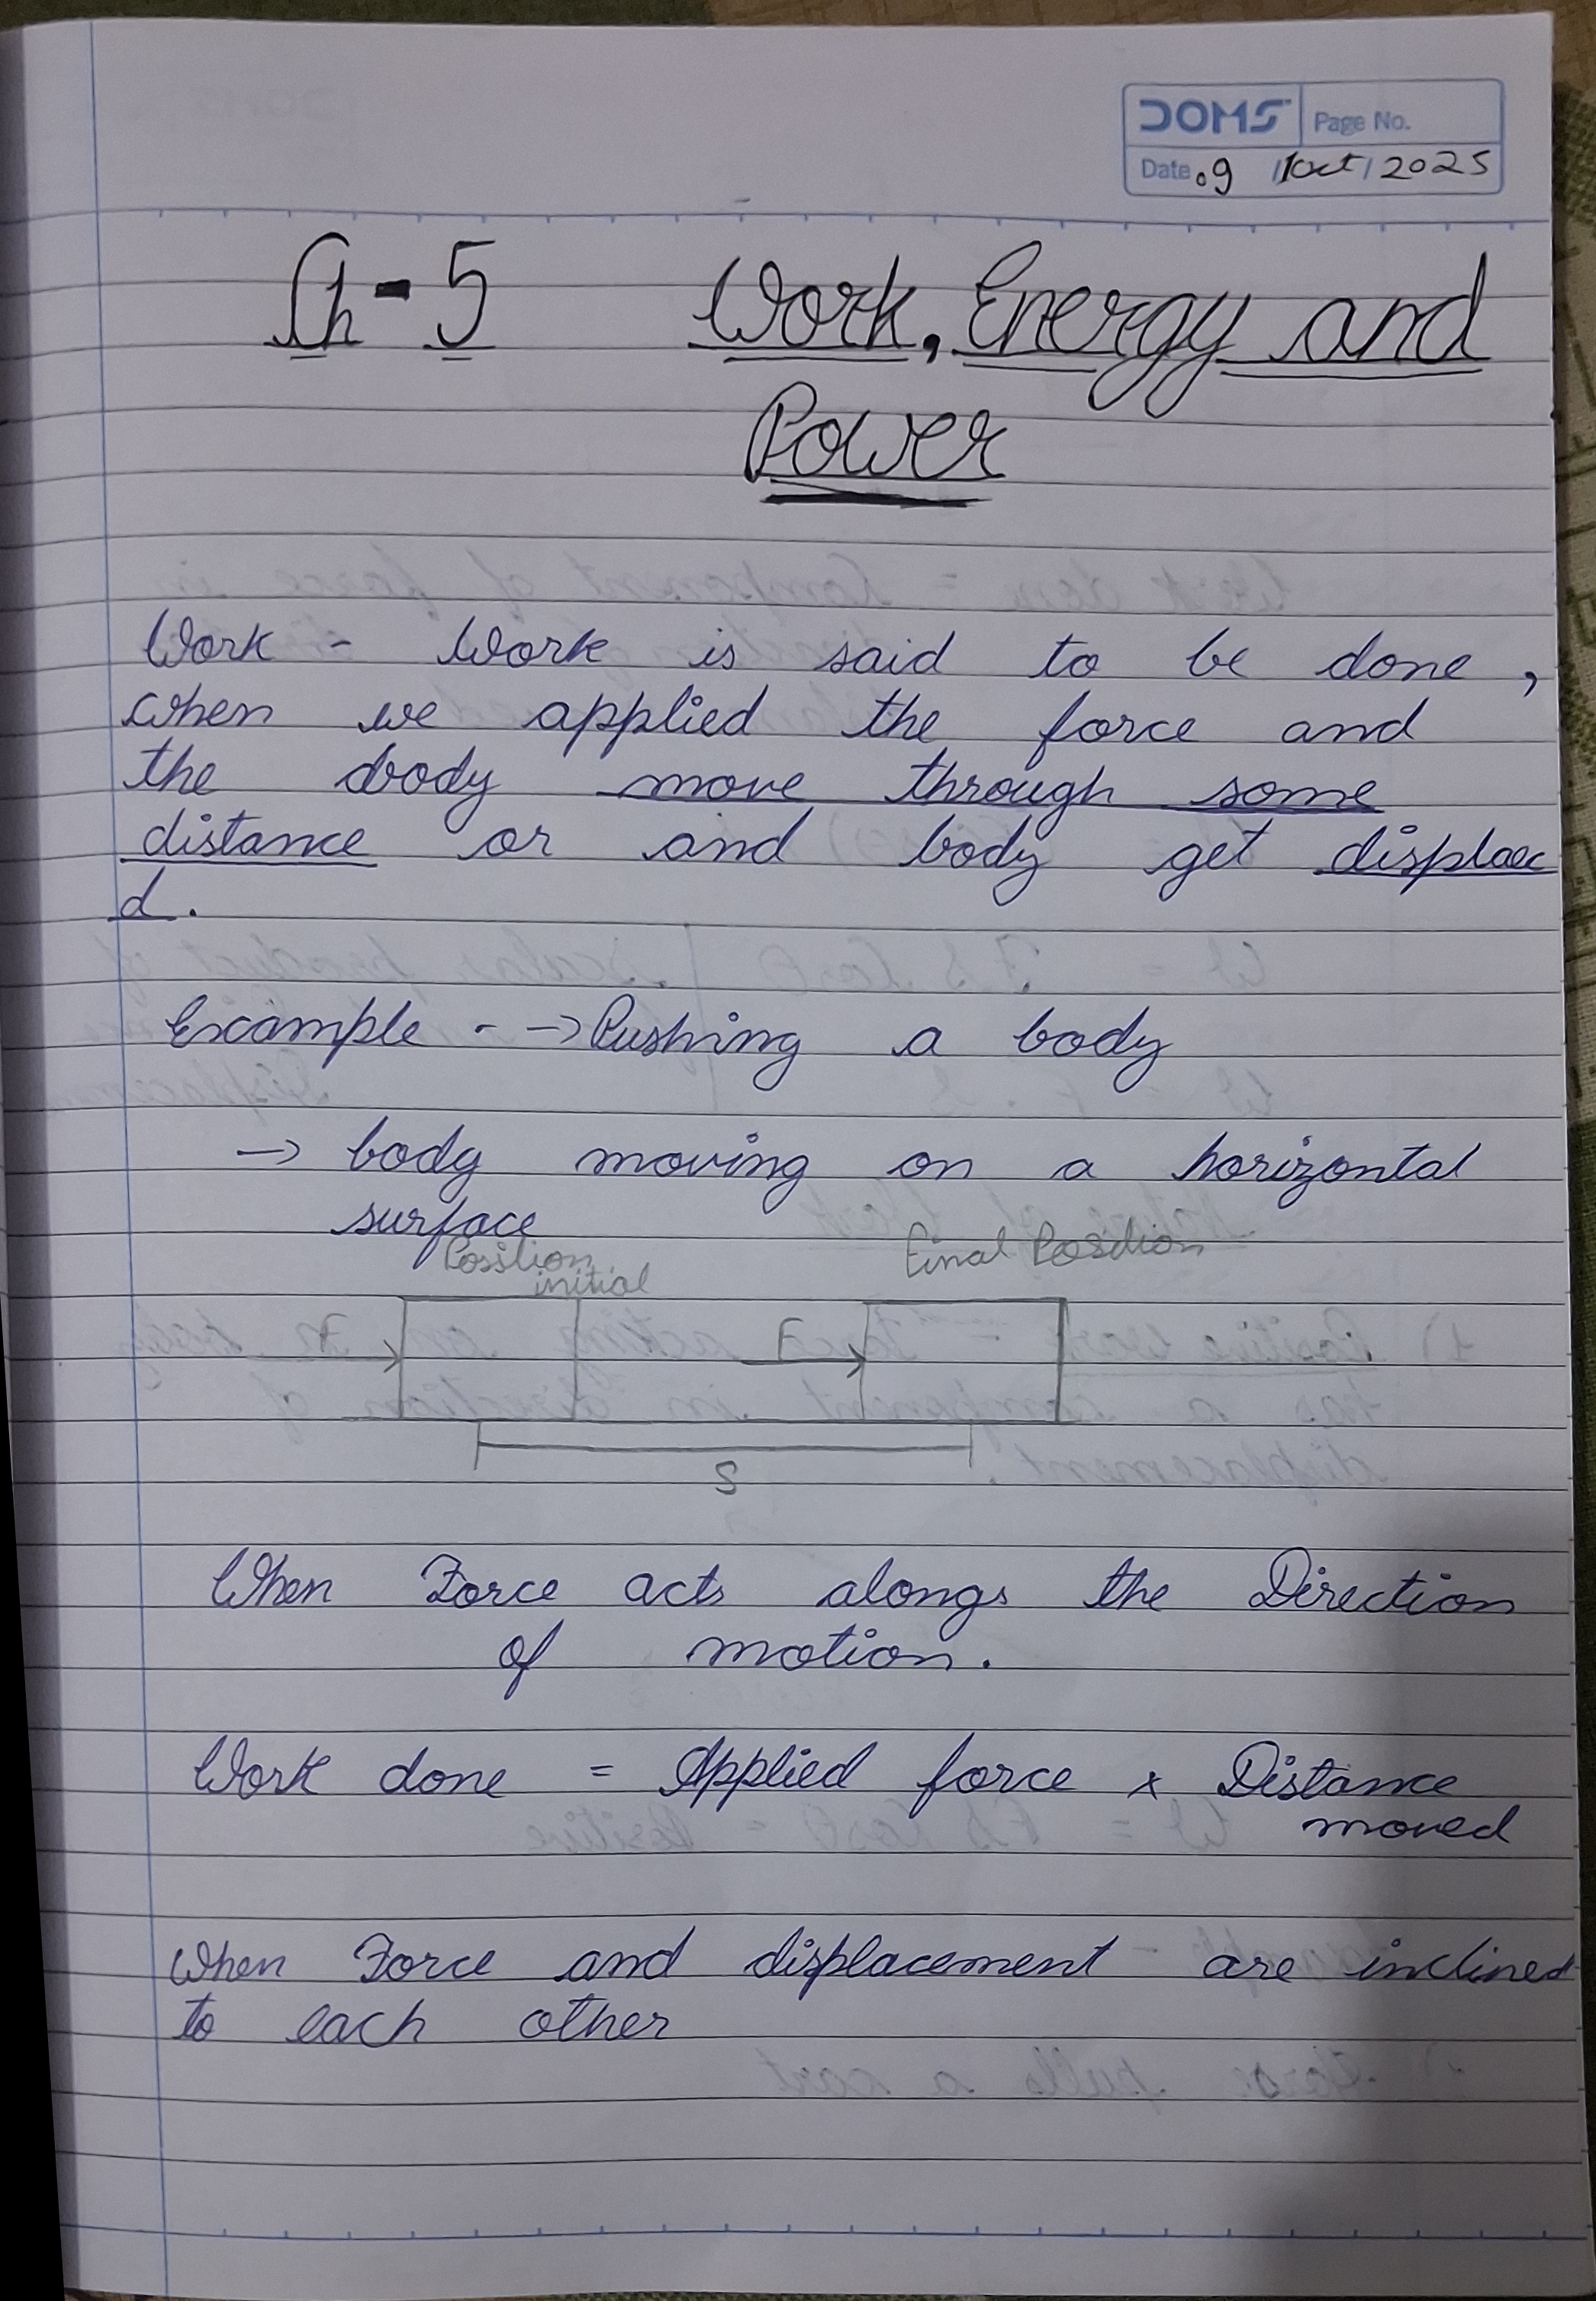 DOMS Page No.
Date 09 / Oct / 2025
Ch-5 Work, Energy and
Power
Work - Work is said to be done,
when we applied the force and
the body move through some
distance or and body get displace
d.
Example - → Pushing a body
→ body moving on a horizontal
surface
Position Final Position
initial
F
S
When Force acts alongs the Direction
of motion.
Work done = Applied force × Distance
moved
When Force and displacement are inclined
to each other